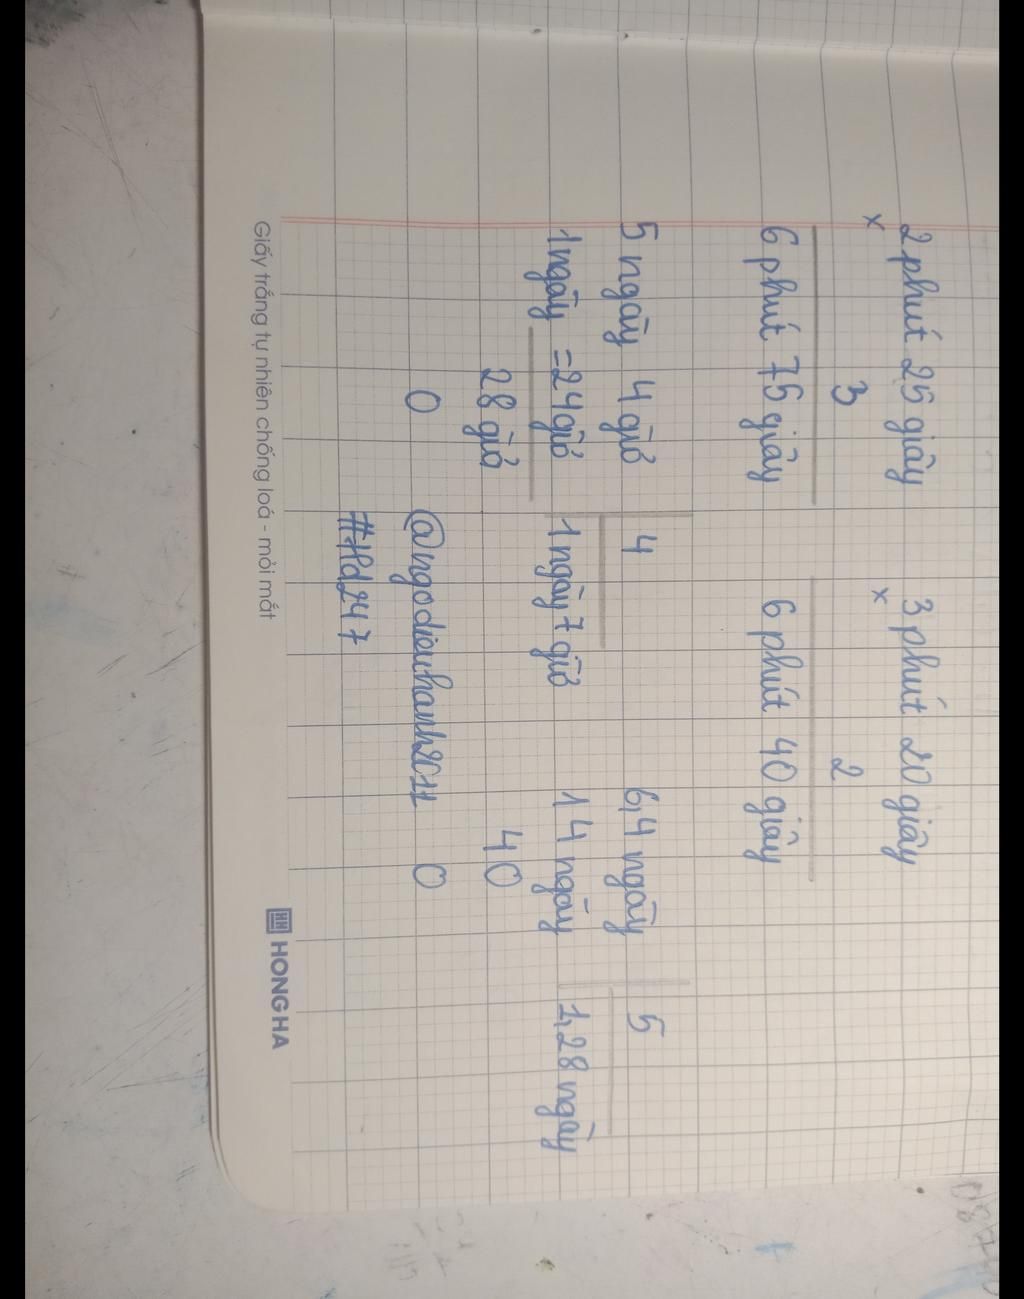 2 phút 25 giây
x
3
6 phút 75 giây
3 phút 20 giây
x
2
6 phút 40 giây
5 ngày 4 giờ 4
1ngày =24giờ 1 ngày 7 giờ
28 giờ
0
6,4 ngày 5
14 ngày 1,28 ngày
40
0
@ngodieuhanh2011
#Hd247
Giấy trắng tự nhiên chống loá - mỏi mắt
HH HONG HA